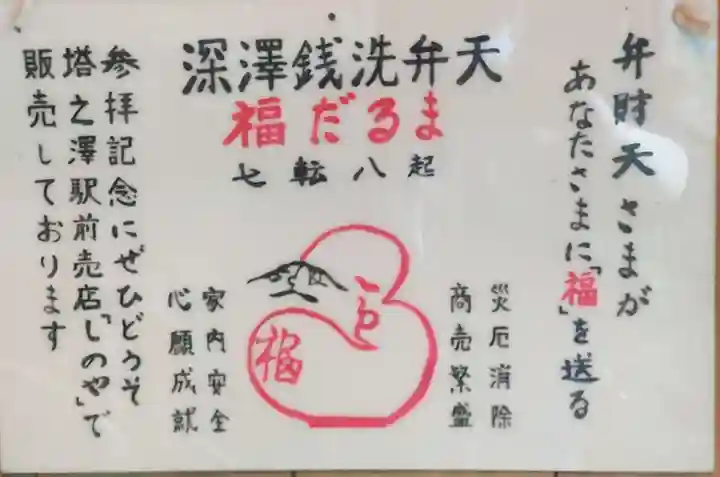 弁財天さまが
あなたさまに「福」を送る
深澤銭洗弁天
福だるま
七転八起
災厄消除
商売繁盛
福
家内安全
心願成就
参拝記念にぜひどうぞ
塔之澤駅前売店「しのや」で
販売しております